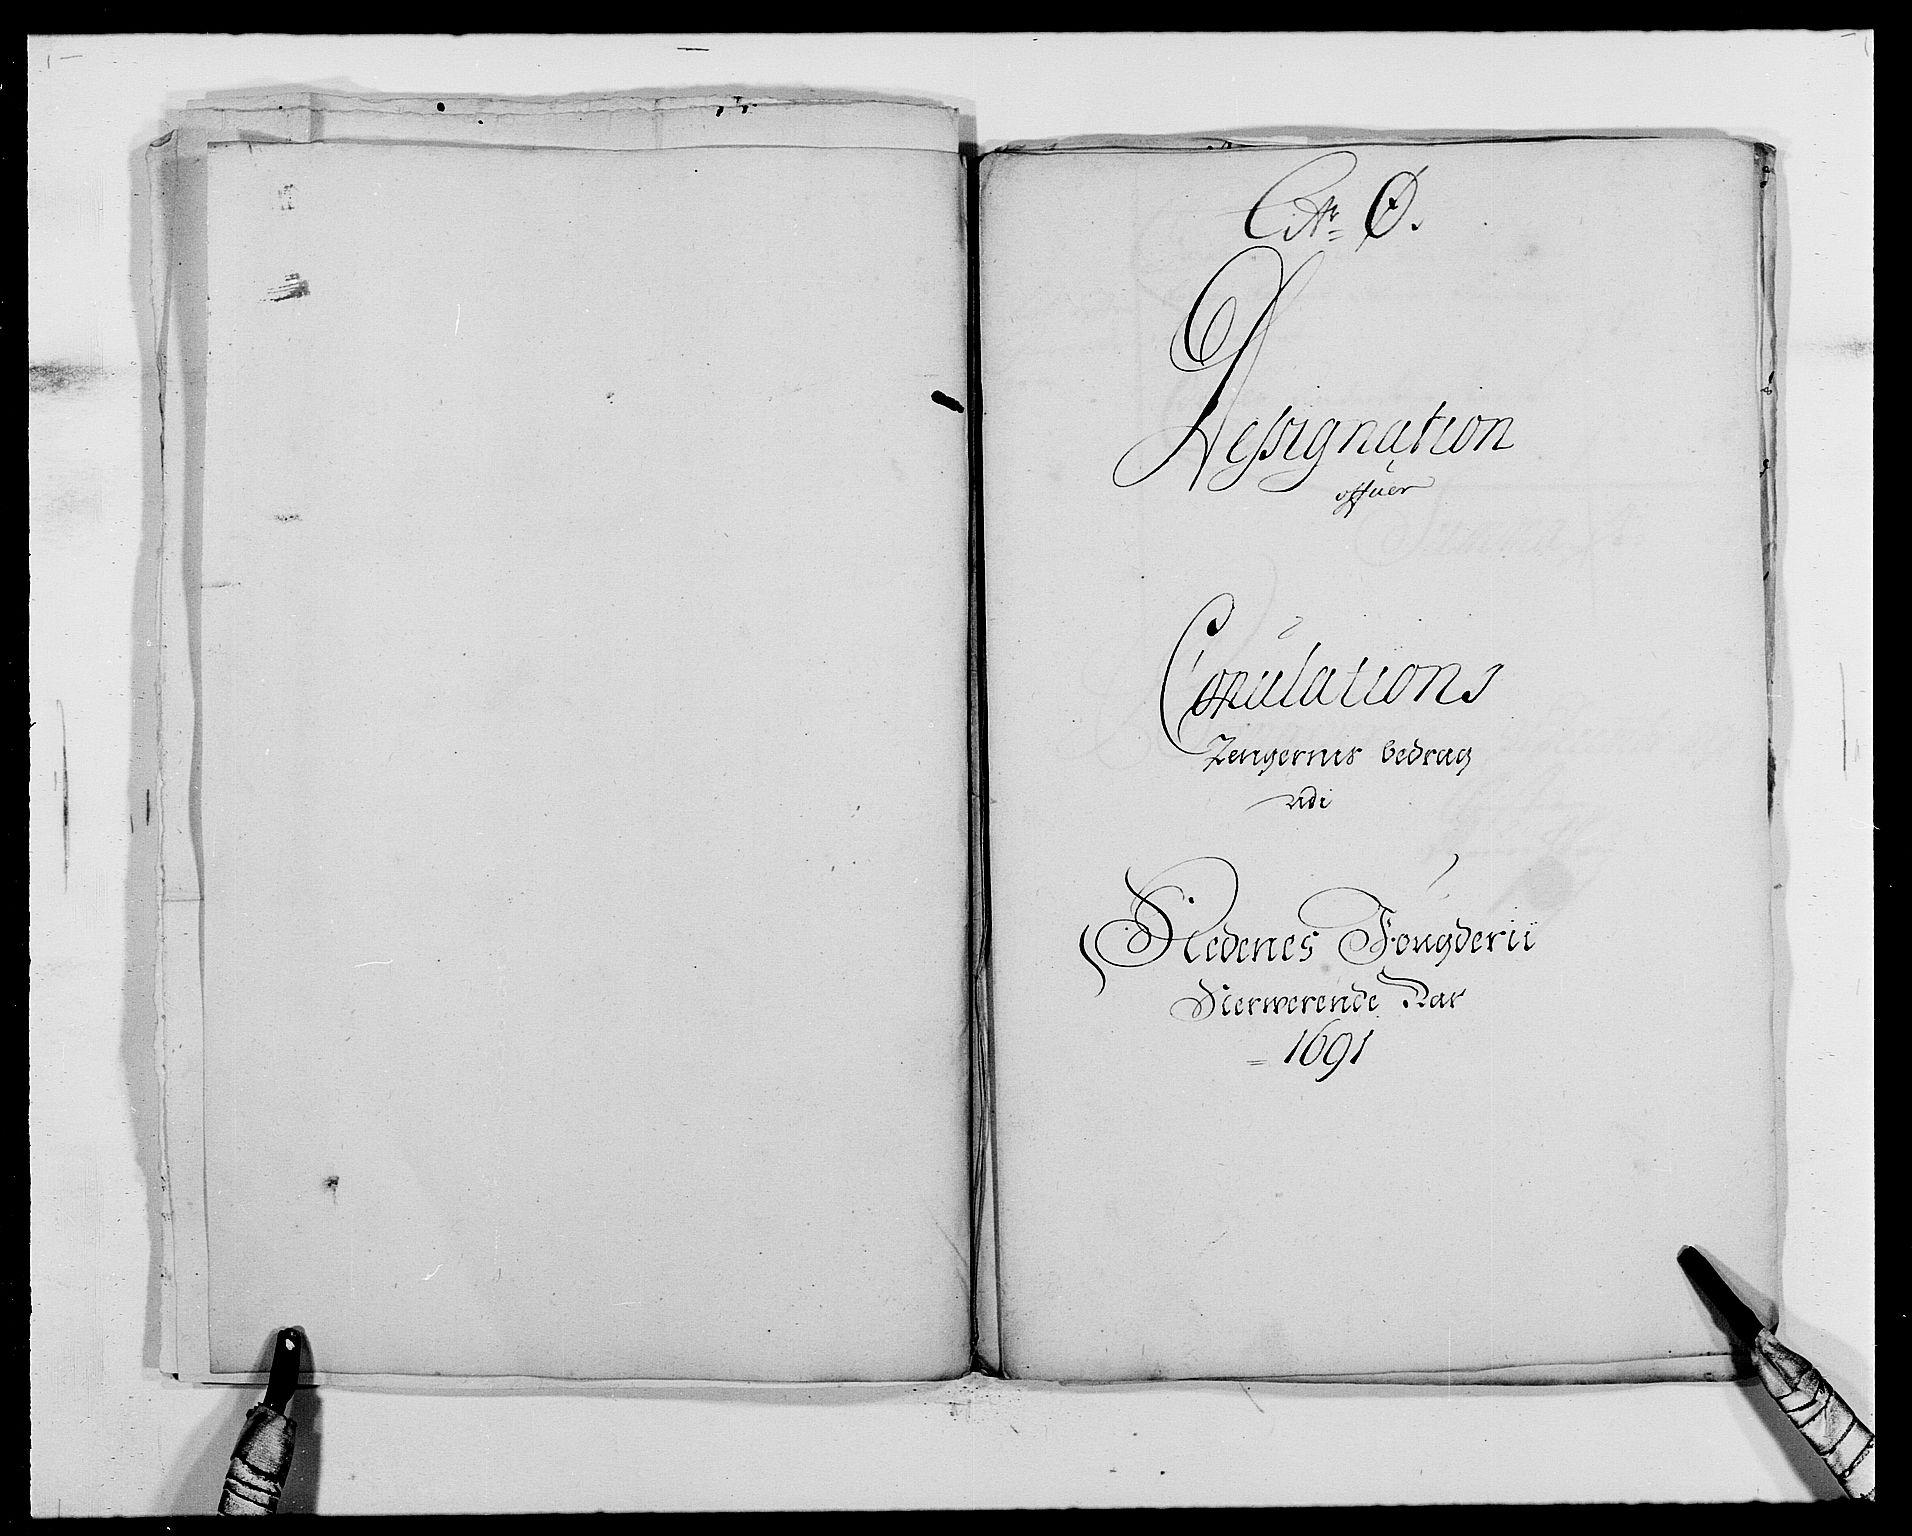 Litr: Ø.
Dessignation
offuer
Copulations
Pengernis bedrag
udi
Nedenes Fougderij
Nerwerende Aar
1691